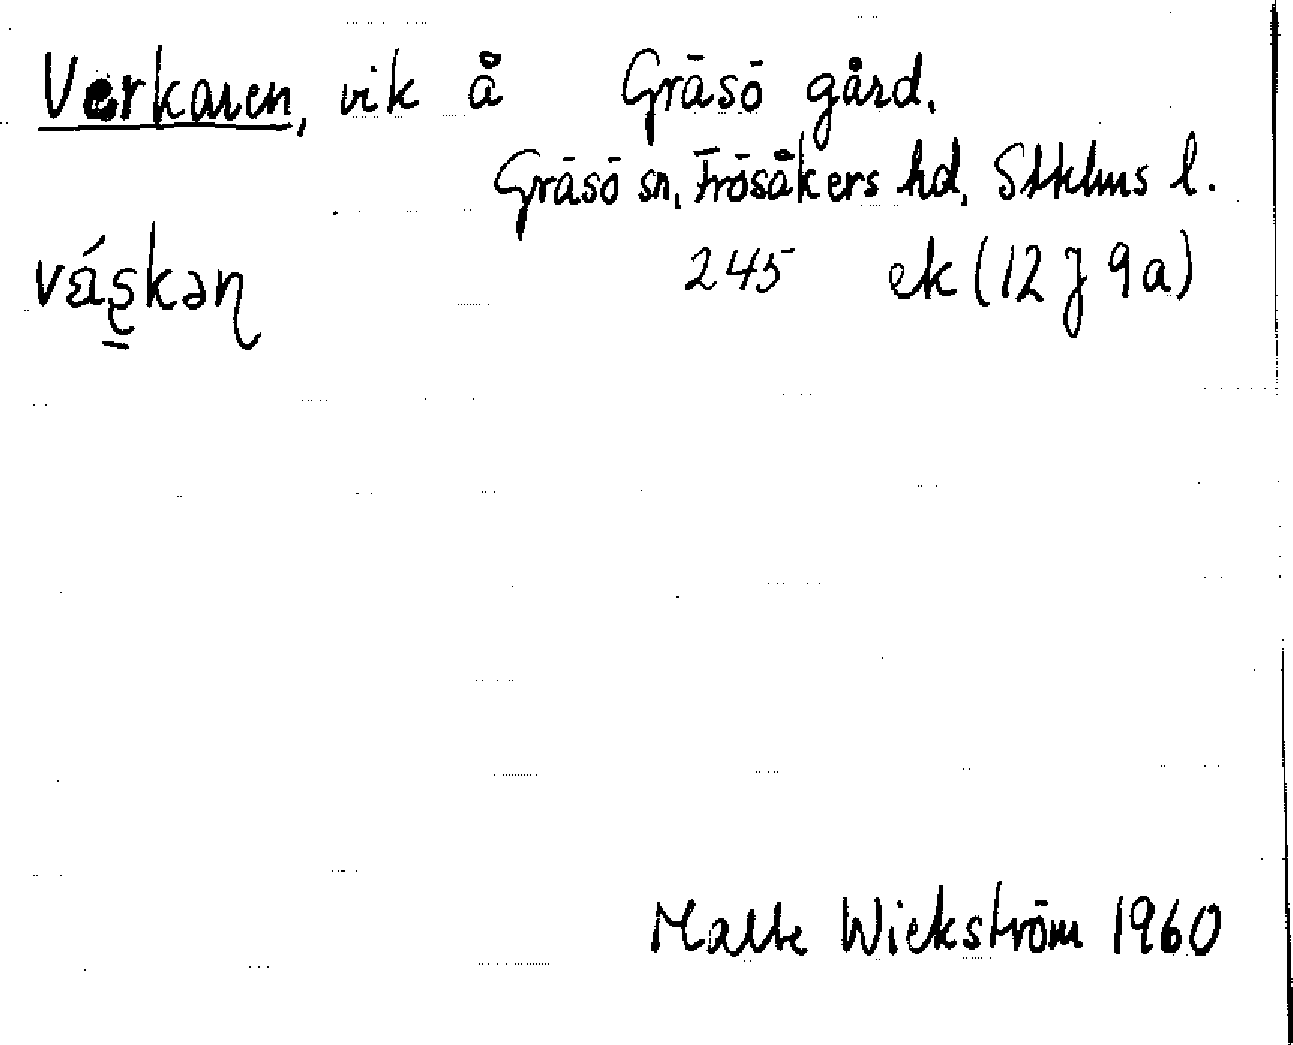 Verkaren, vik å Gräsö gård.
Gräsö sn, Frösåkers hd, Stklms l.
245 ek (12 J 9a)
Malte Wickström 1960